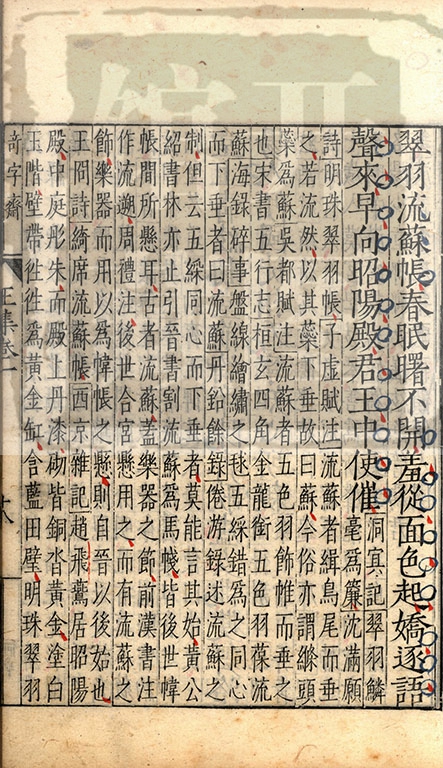 翠羽流蘇帳春眠曙不開羞從面色起嬌逐語
聲來早向昭陽殿君王中使催
洞冥記翠羽鱗
毫爲簾沈滿願
詩明珠翠羽帳子虛賦注流蘇者緝鳥尾而垂
之若流然以其蘂下垂故曰蘇今俗亦謂絛頭
蘂爲蘇吳都賦注流蘇者五色羽飾帷而垂之
也宋書五行志桓玄四角金龍銜五色羽葆流
蘇海錄碎事盤線繪繡之毬五綵錯爲之同心
而下垂者曰流蘇丹鉛餘錄倦游錄述流蘇之
制但云五綵同心而下垂者莫能言其始黃公
紹書林亦止引晉書割流蘇爲馬帴皆後世幃
帳間所懸耳古者流蘇蓋樂器之飾前漢書注
作流遡周禮注後世合宮懸用之而有流蘇之
飾樂器而用以爲幃帳之懸則自晉以後始也
王冏詩綺席流蘇帳西京雜記趙飛鷰居昭陽
殿中庭彤朱而殿上丹漆砌皆銅沓黃金塗白
玉階壁帶徃徃爲黃金缸含藍田璧明珠翠羽
奇字齋
王集卷一